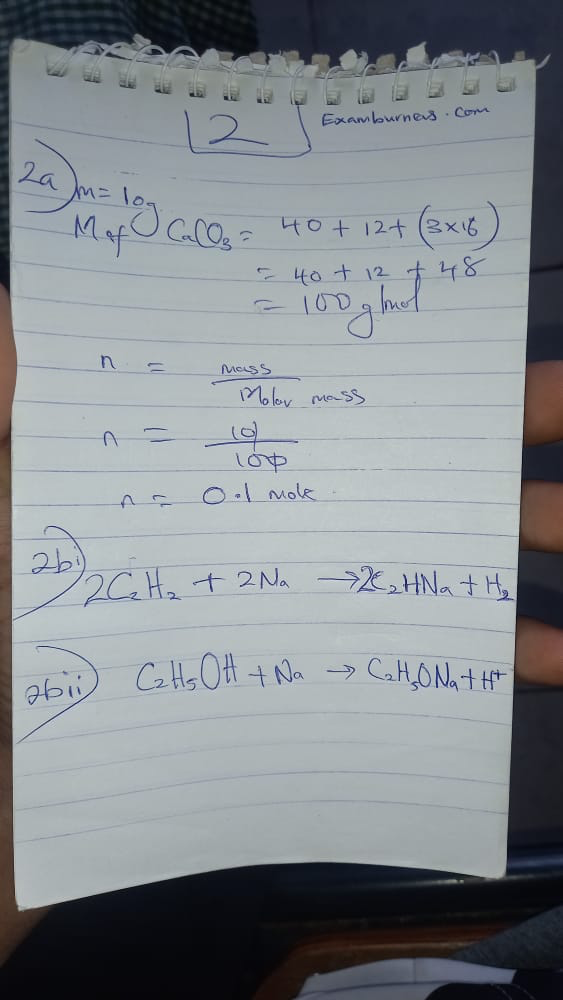 2
Examburners.com
2a) m = 10g
M of CaCO₃ = 40 + 12 + (3x16)
= 40 + 12 + 48
= 100 g/mol
n = mass / Molar mass
n = 10 / 100
n = 0.1 mole
2bi) 2C₂H₂ + 2Na → 2C₂HNa + H₂
2bii) C₂H₅OH + Na → C₂H₅ONa + H⁺